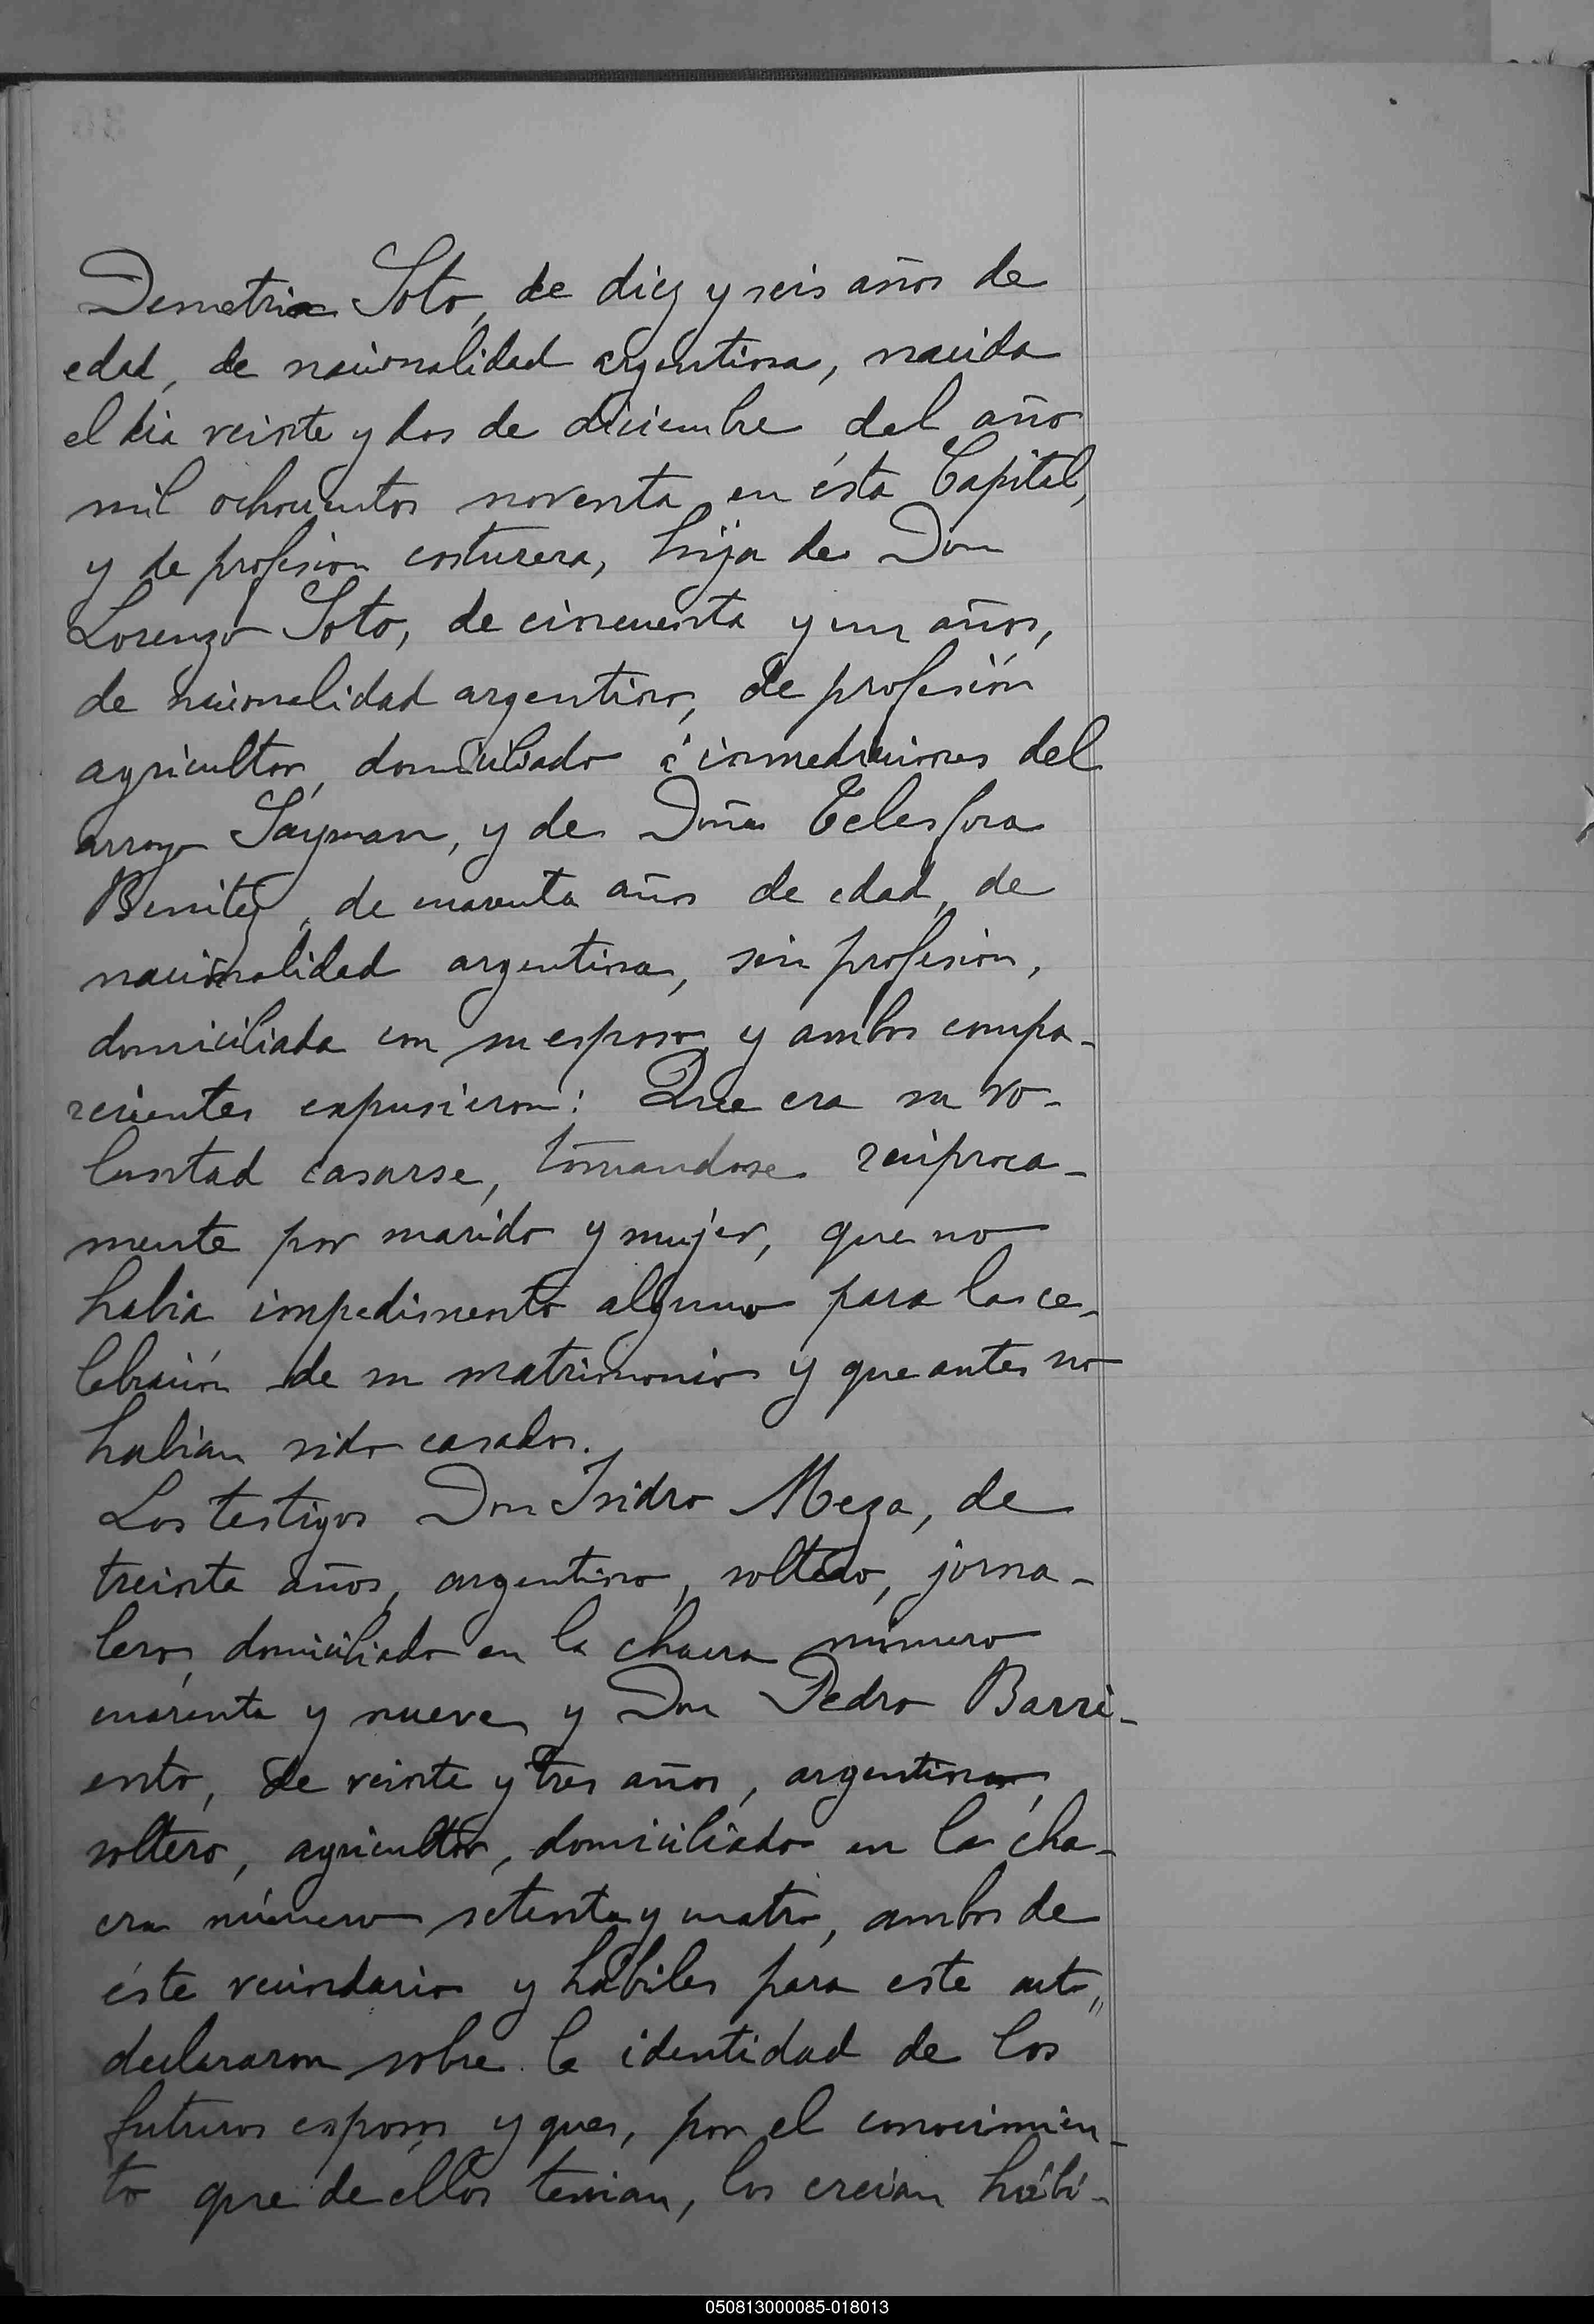 Demetria Soto, de diez y seis años de
edad, de nacionalidad argentina, nacida
el dia veinte y dos de diciembre del año
mil ochocientos noventa en ésta Capital,
y de profesion costurera, hija de Don
Lorenzo Soto, de cincuenta y un años,
de nacionalidad argentino, de profesión
agricultor, domiciliado á inmediaciones del
arroyo Sáyman, y de Doña Telesfora
Benitez, de cuarenta años de edad, de
nacionalidad argentina, sin profesion,
domiciliada con su esposo, y ambos compa-
recientes expusieron: Que era su vo-
luntad casarse, tomandose reciproca-
mente por marido y mujer, que no
habia impedimento alguno para la ce-
lebración de su matrimonio y que antes no
habian sido casados.
Los testigos Don Isidro Meza, de
treinta años, argentino, soltero, jorna-
lero, domiciliado en la chacra número
cuarenta y nueve, y Don Pedro Barri-
ento, de veinte y tres años, argentino,
soltero, agricultor, domiciliado en la cha-
cra número setenta y cuatro, ambos de
éste vecindario y hábiles para este acto,
declararon sobre la identidad de los
futuros esposos y que, por el conocimien-
to que de ellos tenian, los creian hábi-
050813000085-018013